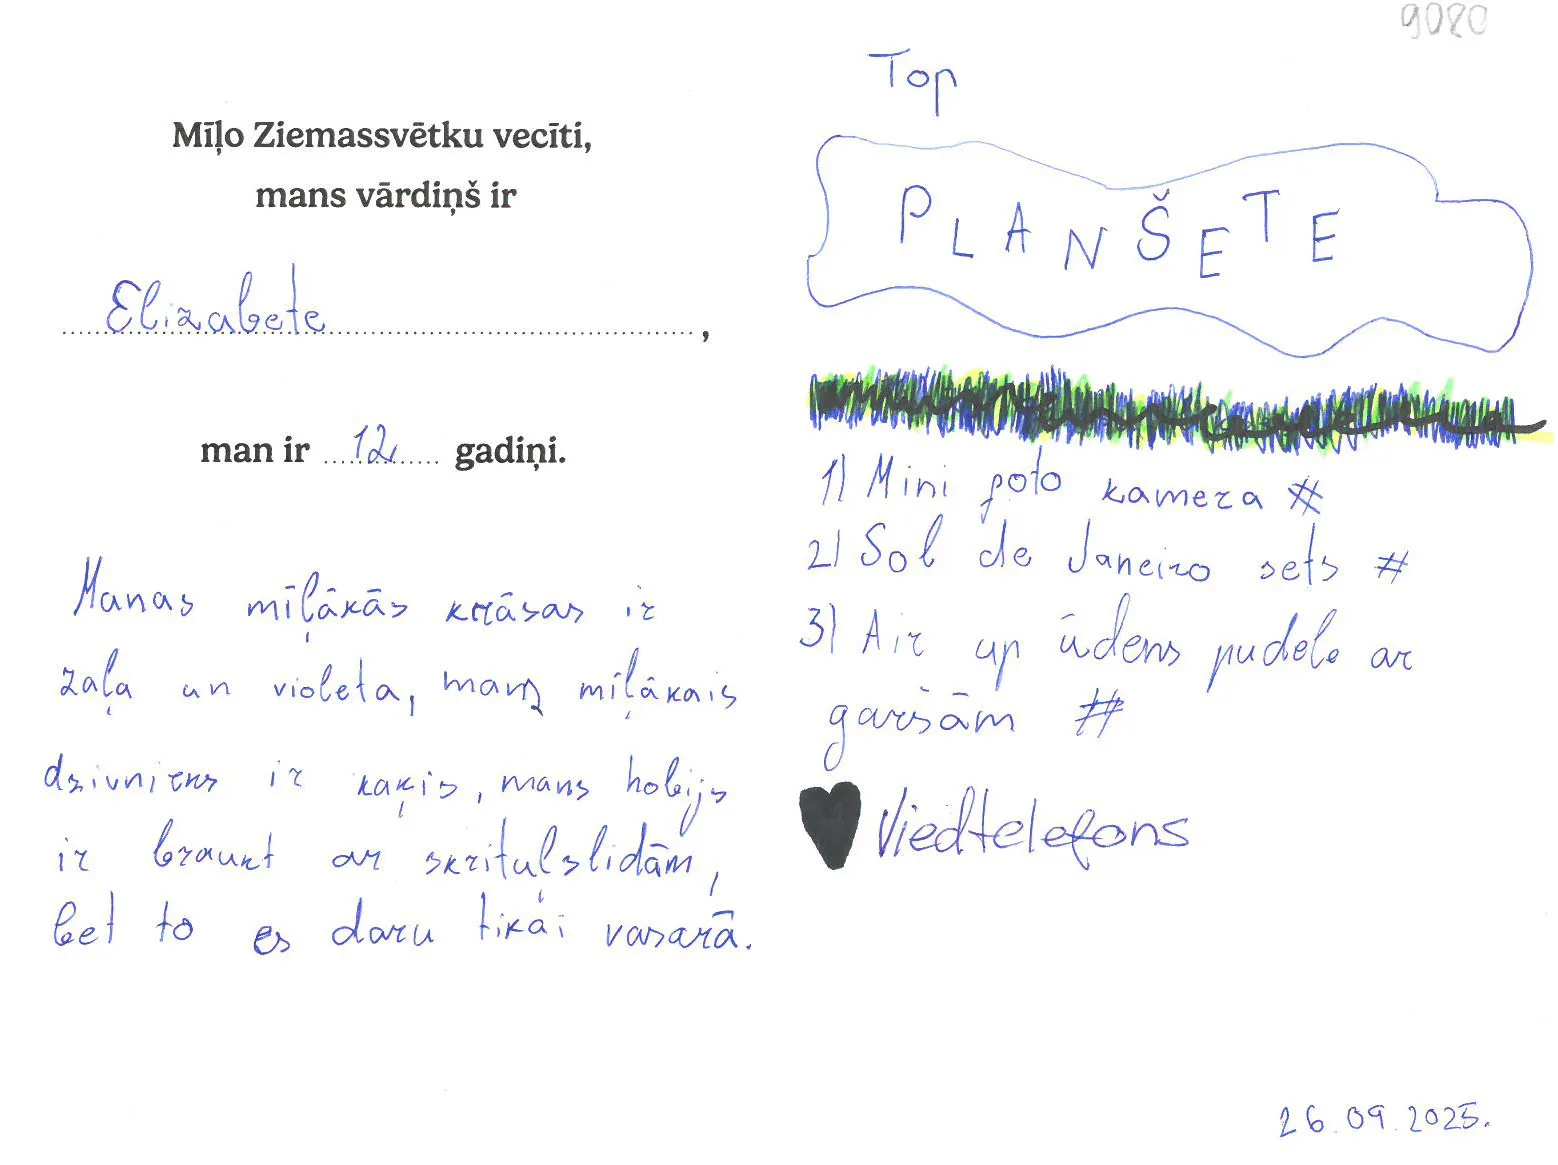 Mīļo Ziemassvētku vecīti,
mans vārdiņš ir
Elizabete,
man ir 12 gadiņi.
Manas mīļākās krāsas ir
zaļa un violeta, mans mīļākais
dzīvnieks ir kaķis, mans hobijs
ir braukt ar skrituļslidām,
bet to es daru tikai vasarā.
9080
Top
PLANŠETE
1) Mini foto kamera #
2) Sol de Janeiro sets #
3) Air up ūdens pudele ar
garšām #
Viedtelefons
26.09.2025.